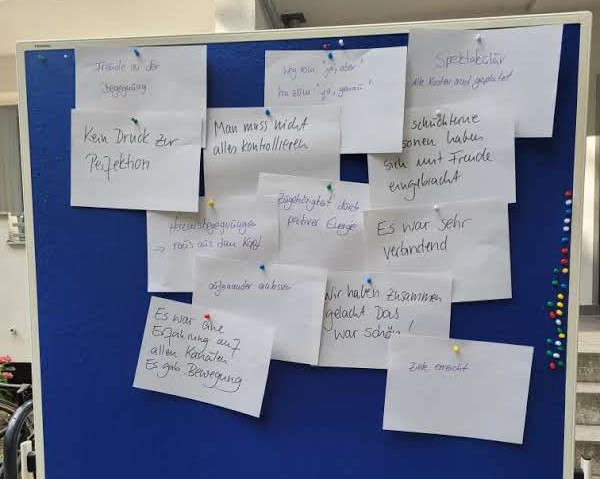 Freude in der
Begegnung
weg vom "ja, aber"
hin zum "ja, genau"
Spektakulär
Alle Knoten sind geplatzt
Kein Druck zur
Perfektion
Man muss nicht
alles kontrollieren
schüchterne
sonen haben
sich mit Freude
eingebracht
Herzensbegegnungen
→ raus aus dem Kopf
Zugehörigkeit durch
positiver Energie
Es war sehr
verbindend
aufeinander einlassen
Wir haben zusammen
gelacht Das
war schön!
Es war eine
Erfahrung auf
allen Kanälen.
Es gab Bewegung
Ziele erreicht